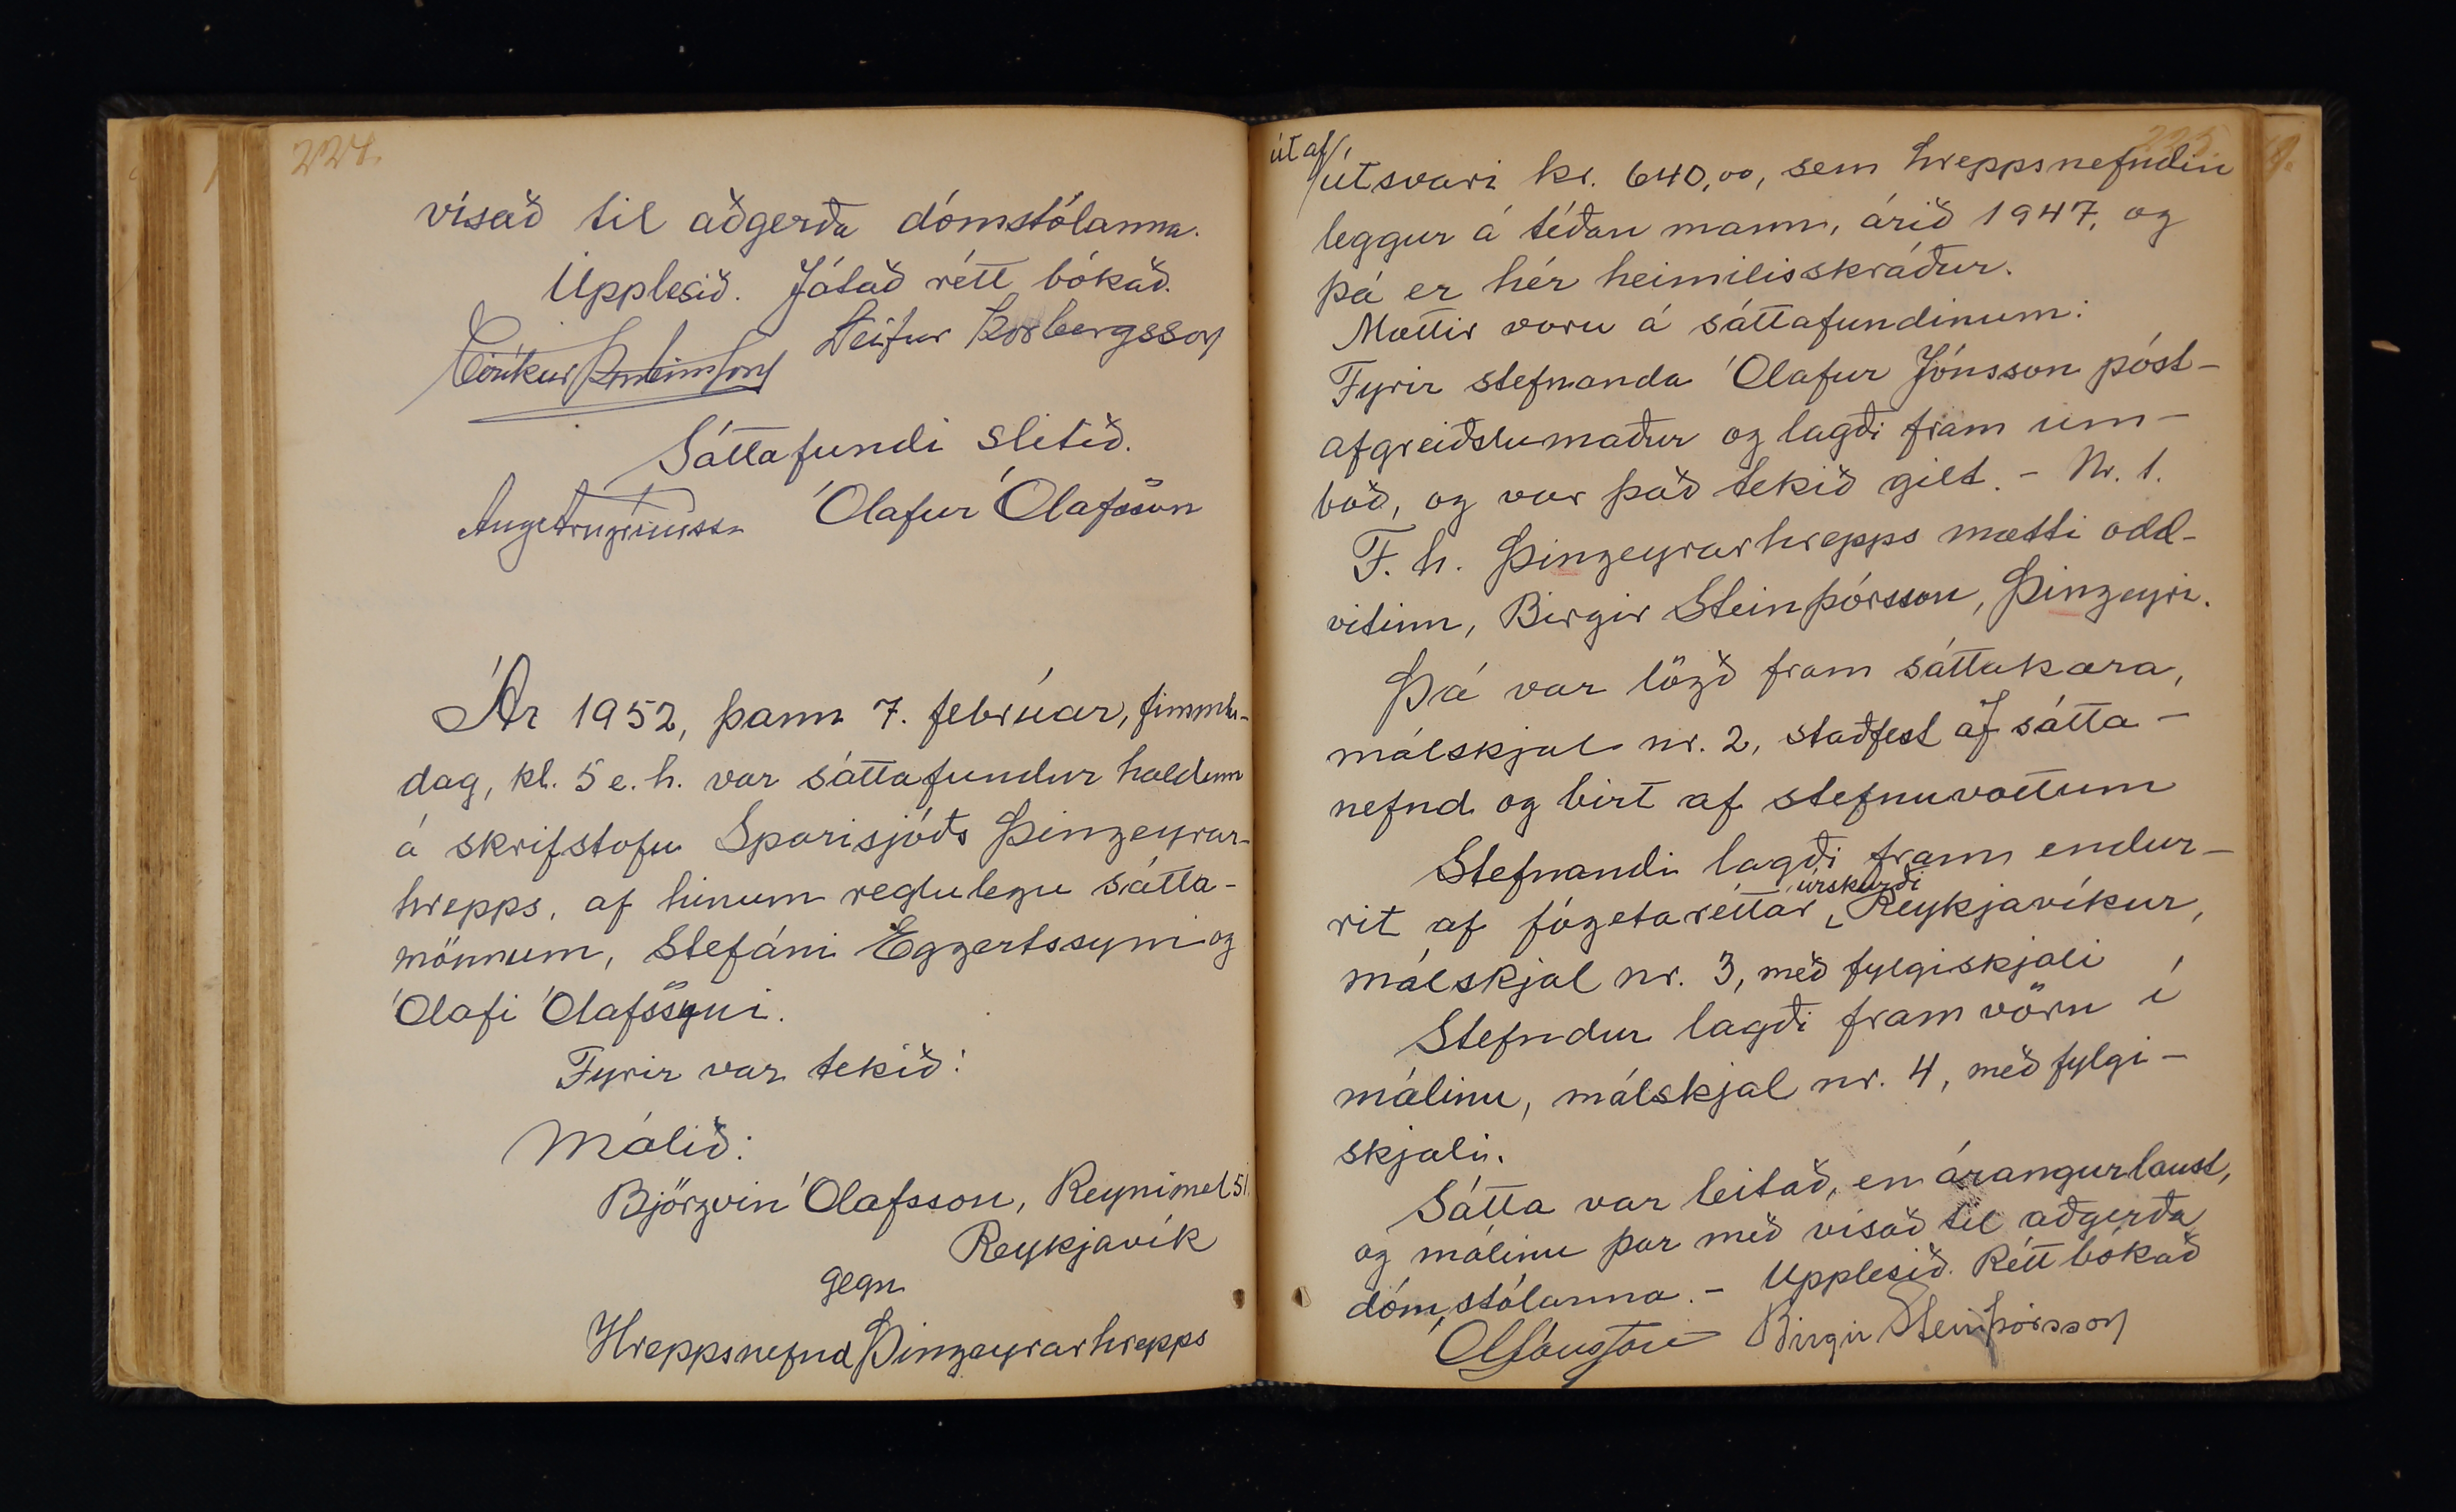 224.
vísað til aðgerða dómstólanna.
Upplesið. Játað rétt bókað.
Eiríkur Þorsteinsson Leifur Þorbergsson
Sáttafundi slitið.
Ólafur Ólafsson
Ár 1952, þann 7. febrúar, fimmtu-
dag, kl. 5 e.h. var sáttafundur haldinn
á skrifstofu Sparisjóðs Þingeyrar-
hrepps, af hinum reglulegu sátta-
mönnum, Stefáni Eggertssyni og
Ólafi Ólafssyni.
Fyrir var tekið:
Málið:
Björgvin Ólafsson, Reynimel 51.
Reykjavík
gegn
Hreppsnefnd Þingeyrarhrepps
225.
út af
útsvari kr. 640,00, sem hreppsnefndin
leggur á téðan mann, árið 1947, og
þá er hér heimilisskráður.
Mættir voru á sáttafundinum:
Fyrir stefnanda Ólafur Jónsson póst-
afgreiðslumaður og lagði fram um-
boð, og var það tekið gilt. - Nr. 1.
F. h. Þingeyrarhrepps mætti odd-
vitinn, Birgir Steinþórsson, Þingeyri.
Þá var lögð fram sáttakæra,
málskjal nr. 2, staðfest af sátta-
nefnd og birt af stefnuvottum
Stefnandi lagði fram endur-
úrskurði
rit af fógetaréttar Reykjavíkur,
málskjal nr. 3, með fylgiskjali
Stefndur lagði fram vörn í
málinu, málskjal nr. 4, með fylgi-
skjali.
Sátta var leitað, en árangurlaust,
og málinu þar með vísað til aðgerða
dómstólanna. - Upplesið. Rétt bókað
Ól Jónsson Birgir Steinþórsson